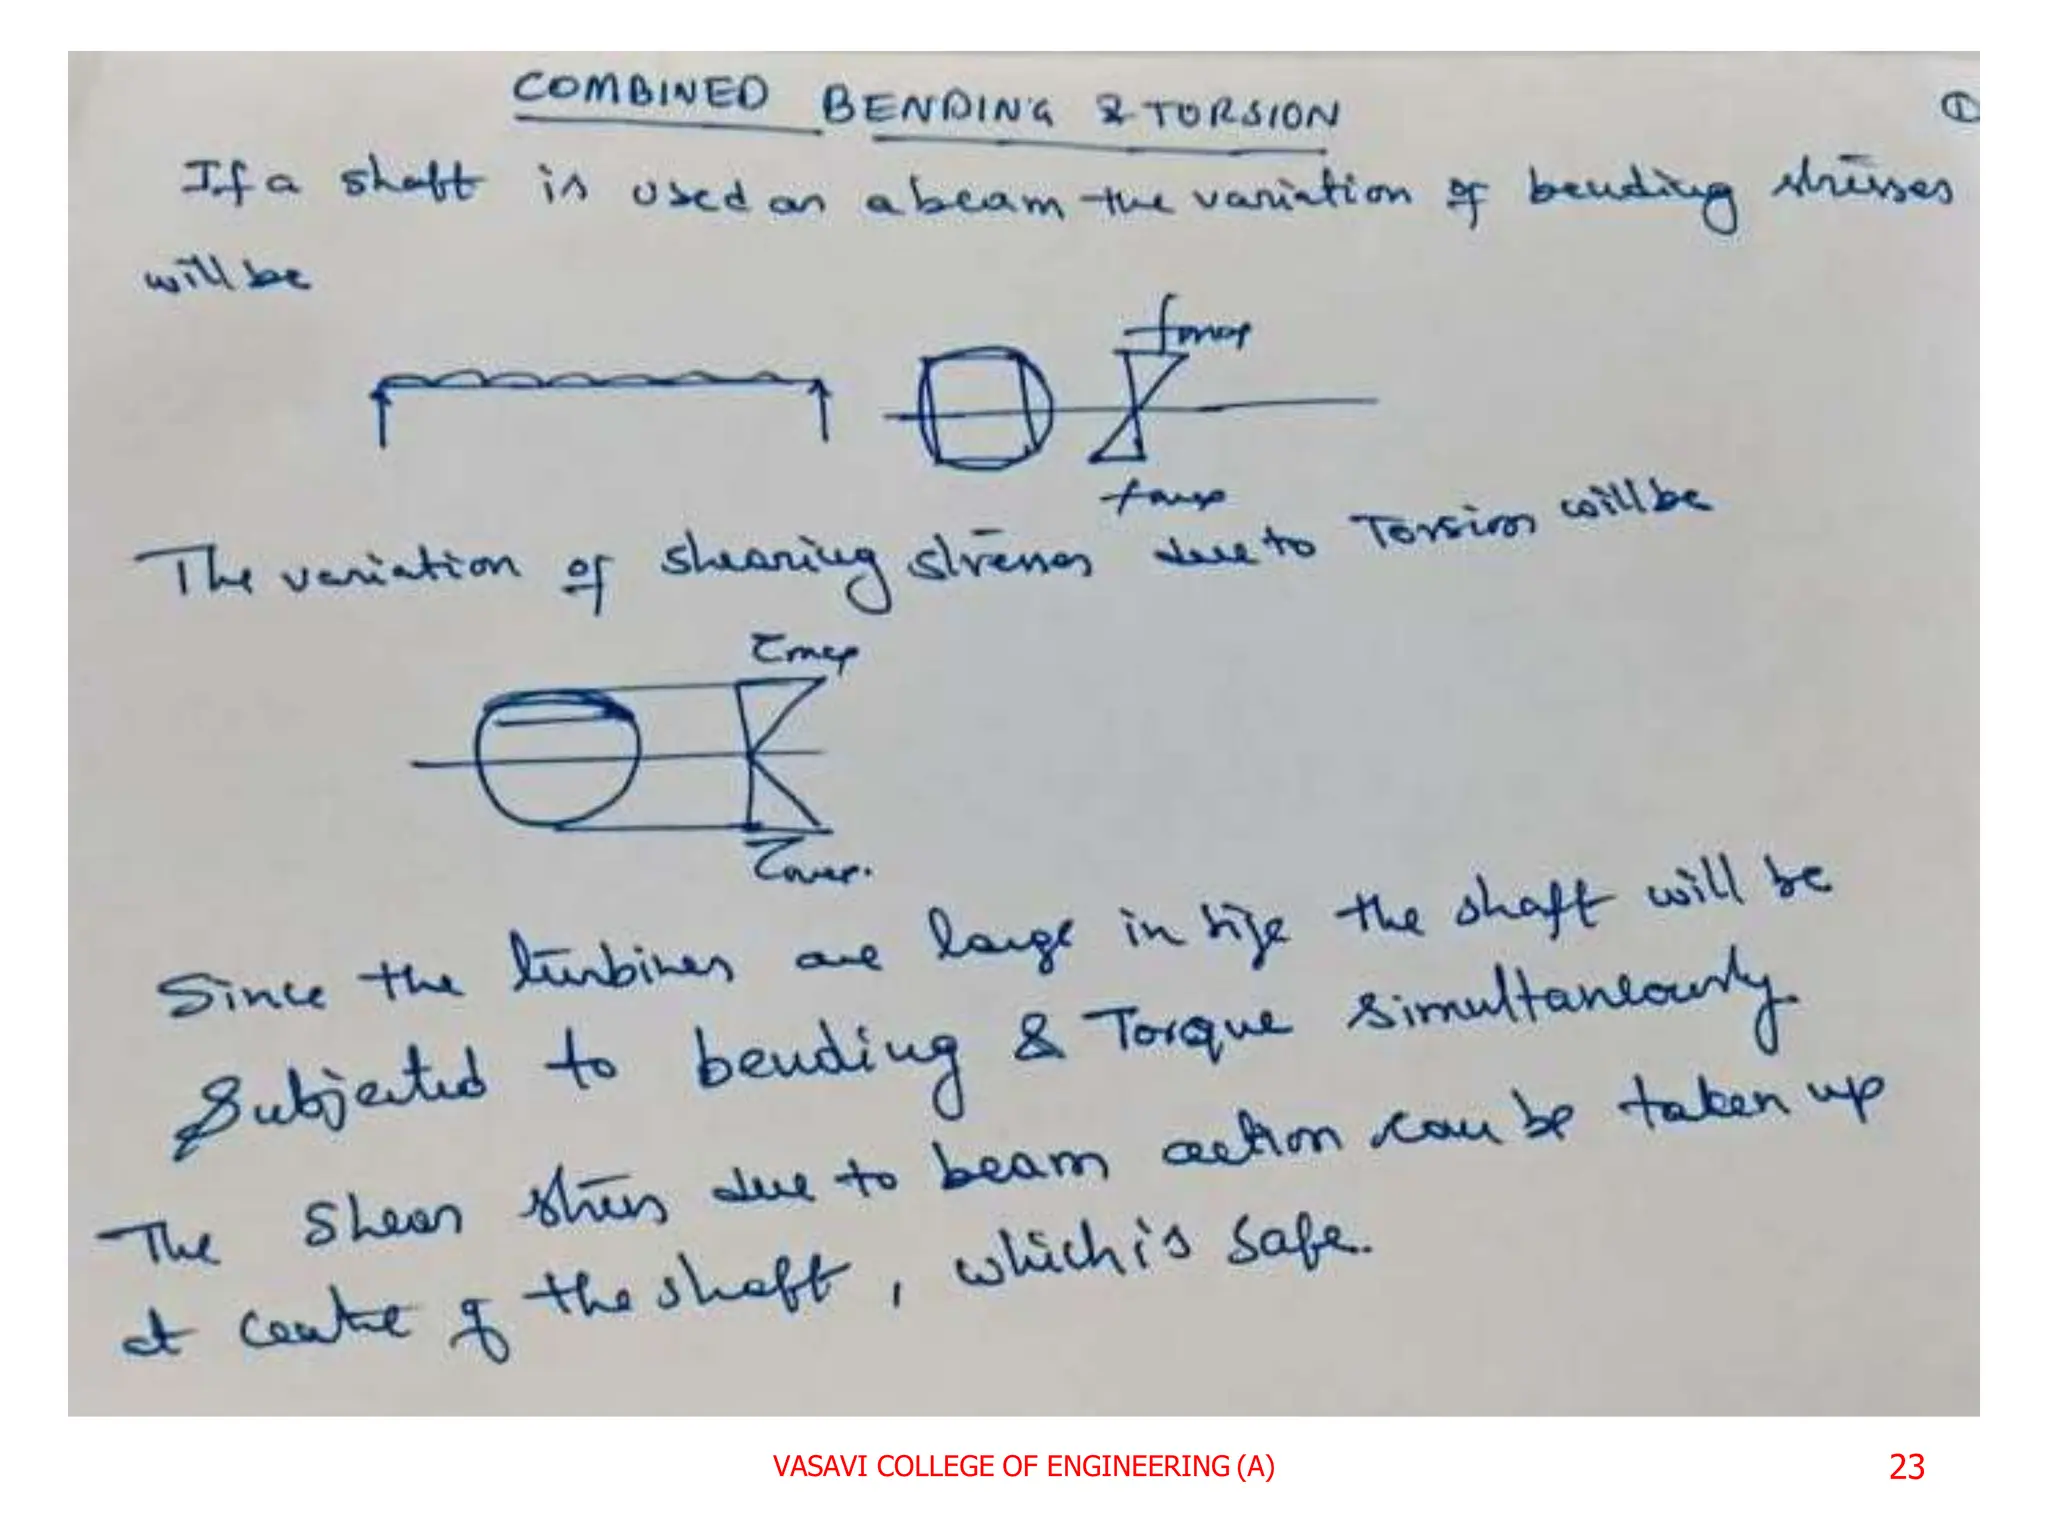 COMBINED BENDING & TORSION
①
If a shaft is used as a beam the variation of bending stresses
will be
fmax
fmax
The variation of shearing stresses due to Torsion will be
τmax
τmax.
Since the turbines are large in size the shaft will be
Subjected to bending & Torque simultaneously.
The Shear stress due to beam action can be taken up
at centre of the shaft, which is safe.
VASAVI COLLEGE OF ENGINEERING (A)
23